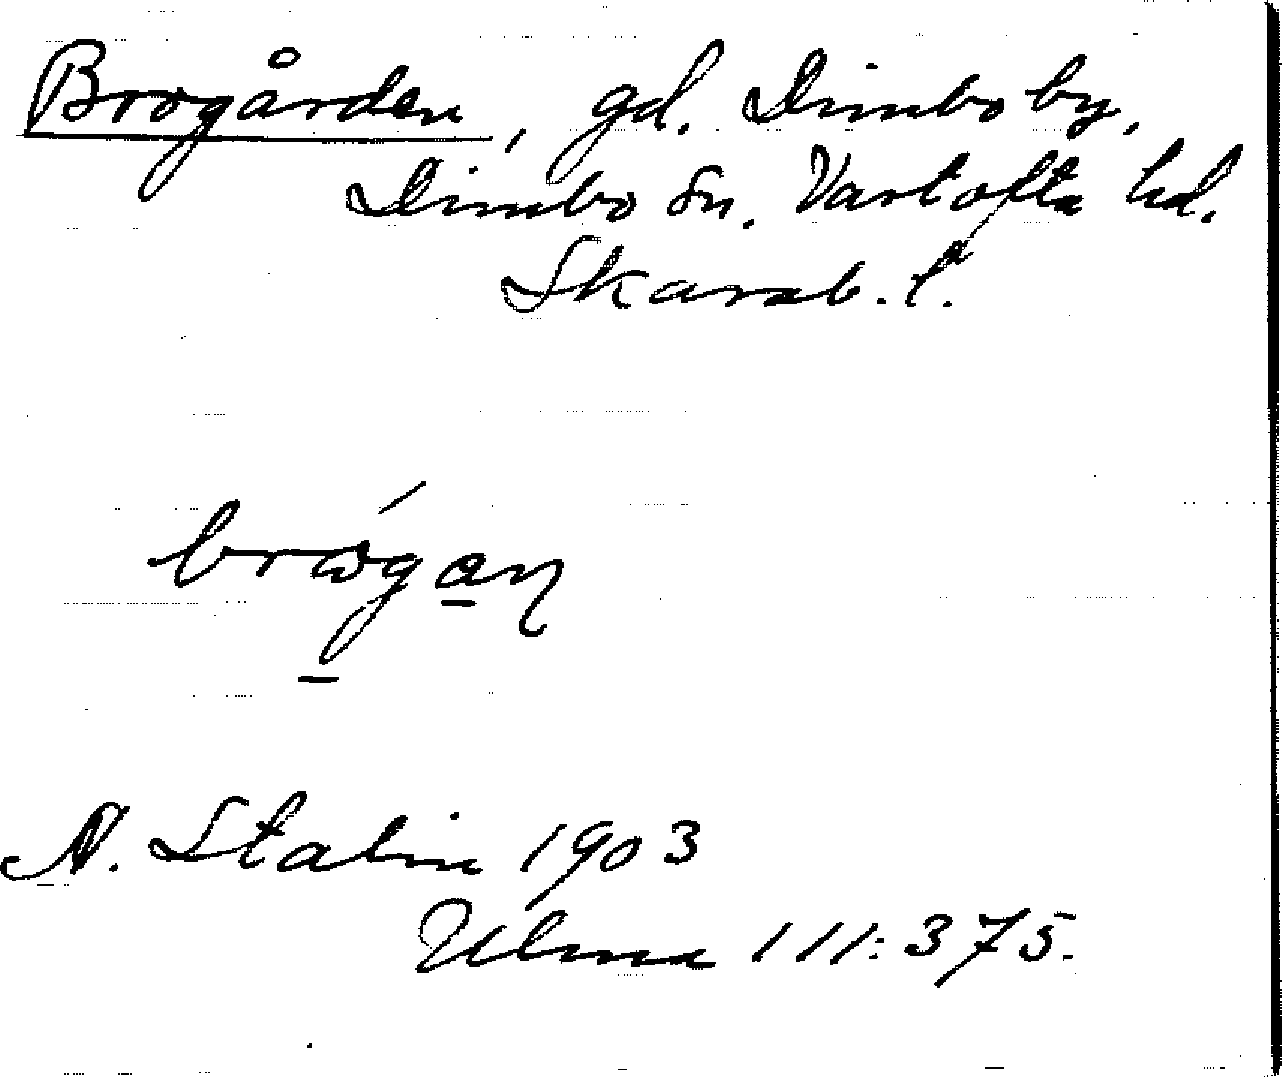 Brogården, gd. Dimbo by,
Dimbo sn. Vartofta hd.
Skarab. l.
brώgan
N. Stalin 1903
Ulma 111:375.